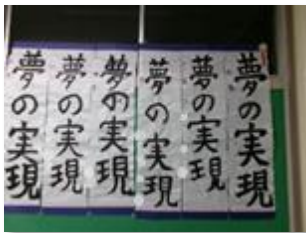 夢の実現
夢の実現
夢の実現
夢の実現
夢の実現
夢の実現